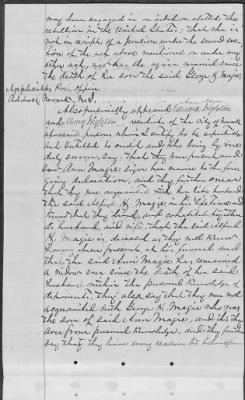 may have engaged in or aided or abetted the
rebellion in the United States; that she is
not in receipt of a pension under the second sec-
tion of the act above mentioned or under any
other act, nor has she again married since
the death of her son the said George H. Magie,
Applicants Post Office
Address Newark, N.J.
Also personally appeared Edward
and Mary residents of the City of Newark
aforesaid, persons whom I certify to be reputable
and entitled to credit and who being by me
duly sworn, say, that they were present and
saw Ann Magie sign her name to the fore-
going declaration, and they further swear
that they were acquainted with her late husband
the said Alfred H. Magie in his lifetime and
know that they lived and cohabited together
as husband and wife, that the said Alfred
H. Magie is deceased as they well know
having been present at his funeral and
that the said Ann Magie has remained
a widow ever since the death of her said
husband within the personal knowledge of
deponents. they also say that they were well
acquainted with George H. Magie who was
the son of said Ann Magie, and this they
aver from personal knowledge, and they further
say that they have every reason to believe